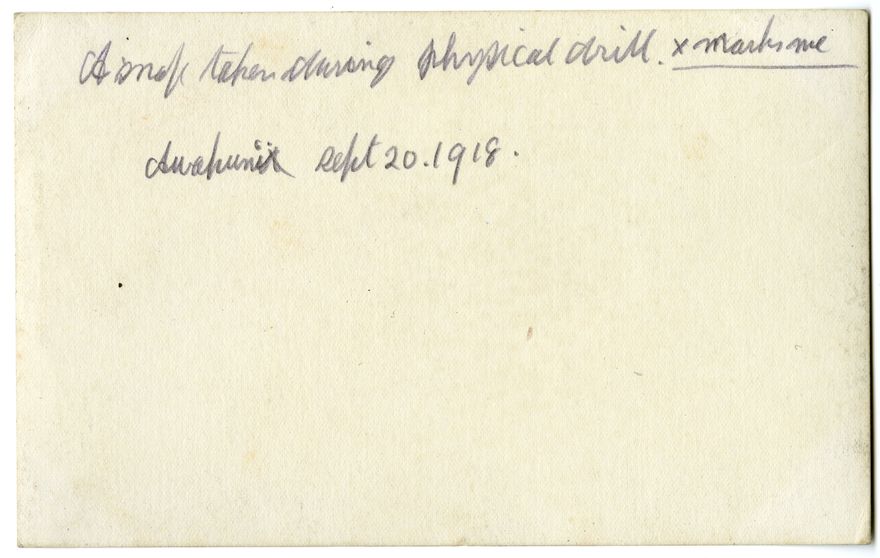 A snap taken during physical drill. x marks me
Awapuni sept 20.1918.